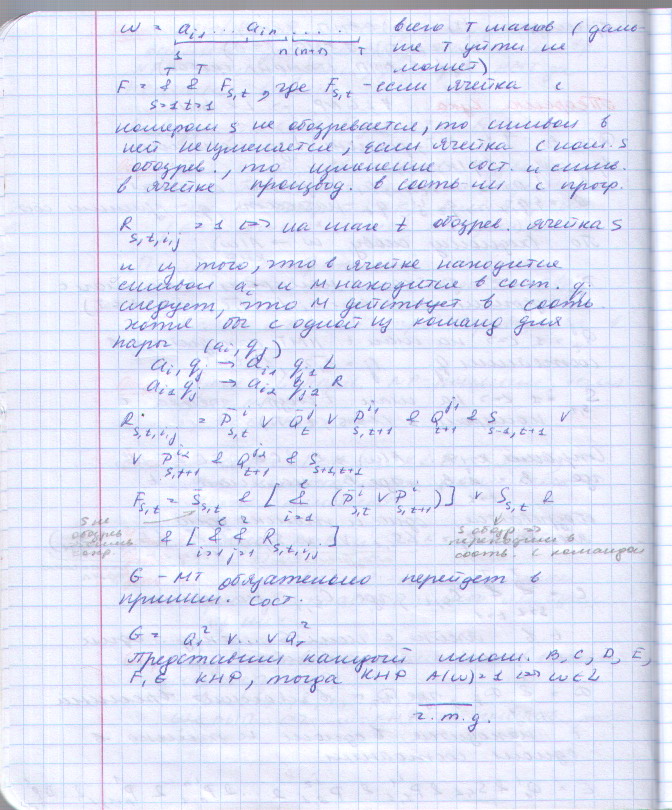 w = a_{i1} ... a_{in} ........ всего T шагов (даль-
1 n (n+1) T ше T уйти не
может)
F = & & F_{s,t}, где F_{s,t} - если ячейка с
T T
s=1 t=1
номером s не обозревается, то символ в
ней не изменяется, если ячейка с ном. s
обозрев., то изменение сост. и симв.
в ячейке производ. в соотв-ии с прогр.
R_{s,t,i,j} = 1 <=> на шаге t обозрев. ячейка s
и из того, что в ячейке находится
символ a_i и M находится в сост. q_j
следует, что M действует в соотв
хотя бы с одной из команд для
пары (a_i, q_j)
a_i, q_j → a_{i1} q_{j1} L
a_i q_j → a_{i2} q_{j2} R
R_{s,t,i,j} = P̄^i_{s,t} ∨ Q̄^j_t ∨ P^{i1}_{s,t+1} & Q^{j1}_{t+1} & S_{s-1,t+1} ∨
∨ P^{i2}_{s,t+1} & Q^{j2}_{t+1} & S_{s+1,t+1}
F_{s,t} = S̄_{s,t} & [ & (P̄^i_{s,t} ∨ P^i_{s,t+1})] ∨ S_{s,t} &
i=1
s не
обозрев
& [ & & R_{s,t,i,j} ]
i=1 j=1
s обозр =>
переходим в
соотв с командой
G - МТ обязательно перейдет в
приним. сост.
G = Q^2_1 ∨ ... ∨ Q^2_T
Представим каждый множ. B, C, D, E,
F, G КНФ, тогда КНФ A(w)=1 <=> w∈L
ч.т.д.